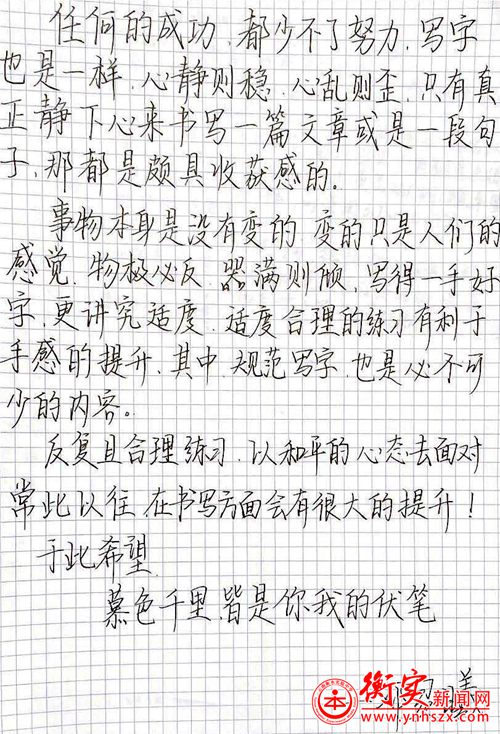 任何的成功,都少不了努力,写字
也是一样,心静则稳,心乱则歪,只有真
正静下心来书写一篇文章或是一段句
子,那都是颇具收获感的。
事物本身是没有变的,变的只是人们的
感觉,物极必反,器满则倾,写得一手好
字,更讲究适度,适度合理的练习有利于
手感的提升,其中,规范写字,也是必不可
少的内容。
反复且合理练习,以和平的心态去面对
常此以往,在书写方面会有很大的提升!
于此希望,
慕色千里,皆是你我的伏笔
衡实新闻网
www.ynhszx.com